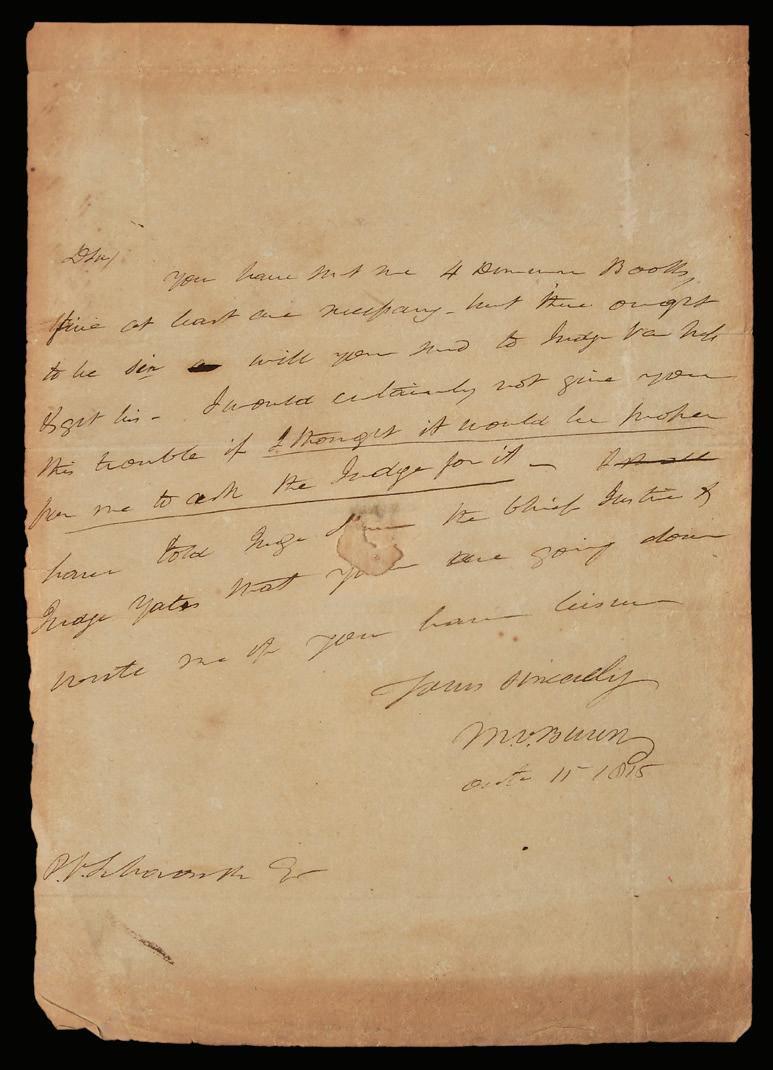 Dr Sir
You have sent me 4 Demurrer Books,
five at least are necessary - but there ought
to be six will you send to Judge Van Ness
& get his - I would certainly not give you
this trouble if I thought it would be proper
for me to ask the Judge for it -
have told the Chief Justice &
Judge Yates that you are going down
write me if you have leisure
Yours Sincerely
M.V.Buren
Octr 15 1815
Esr